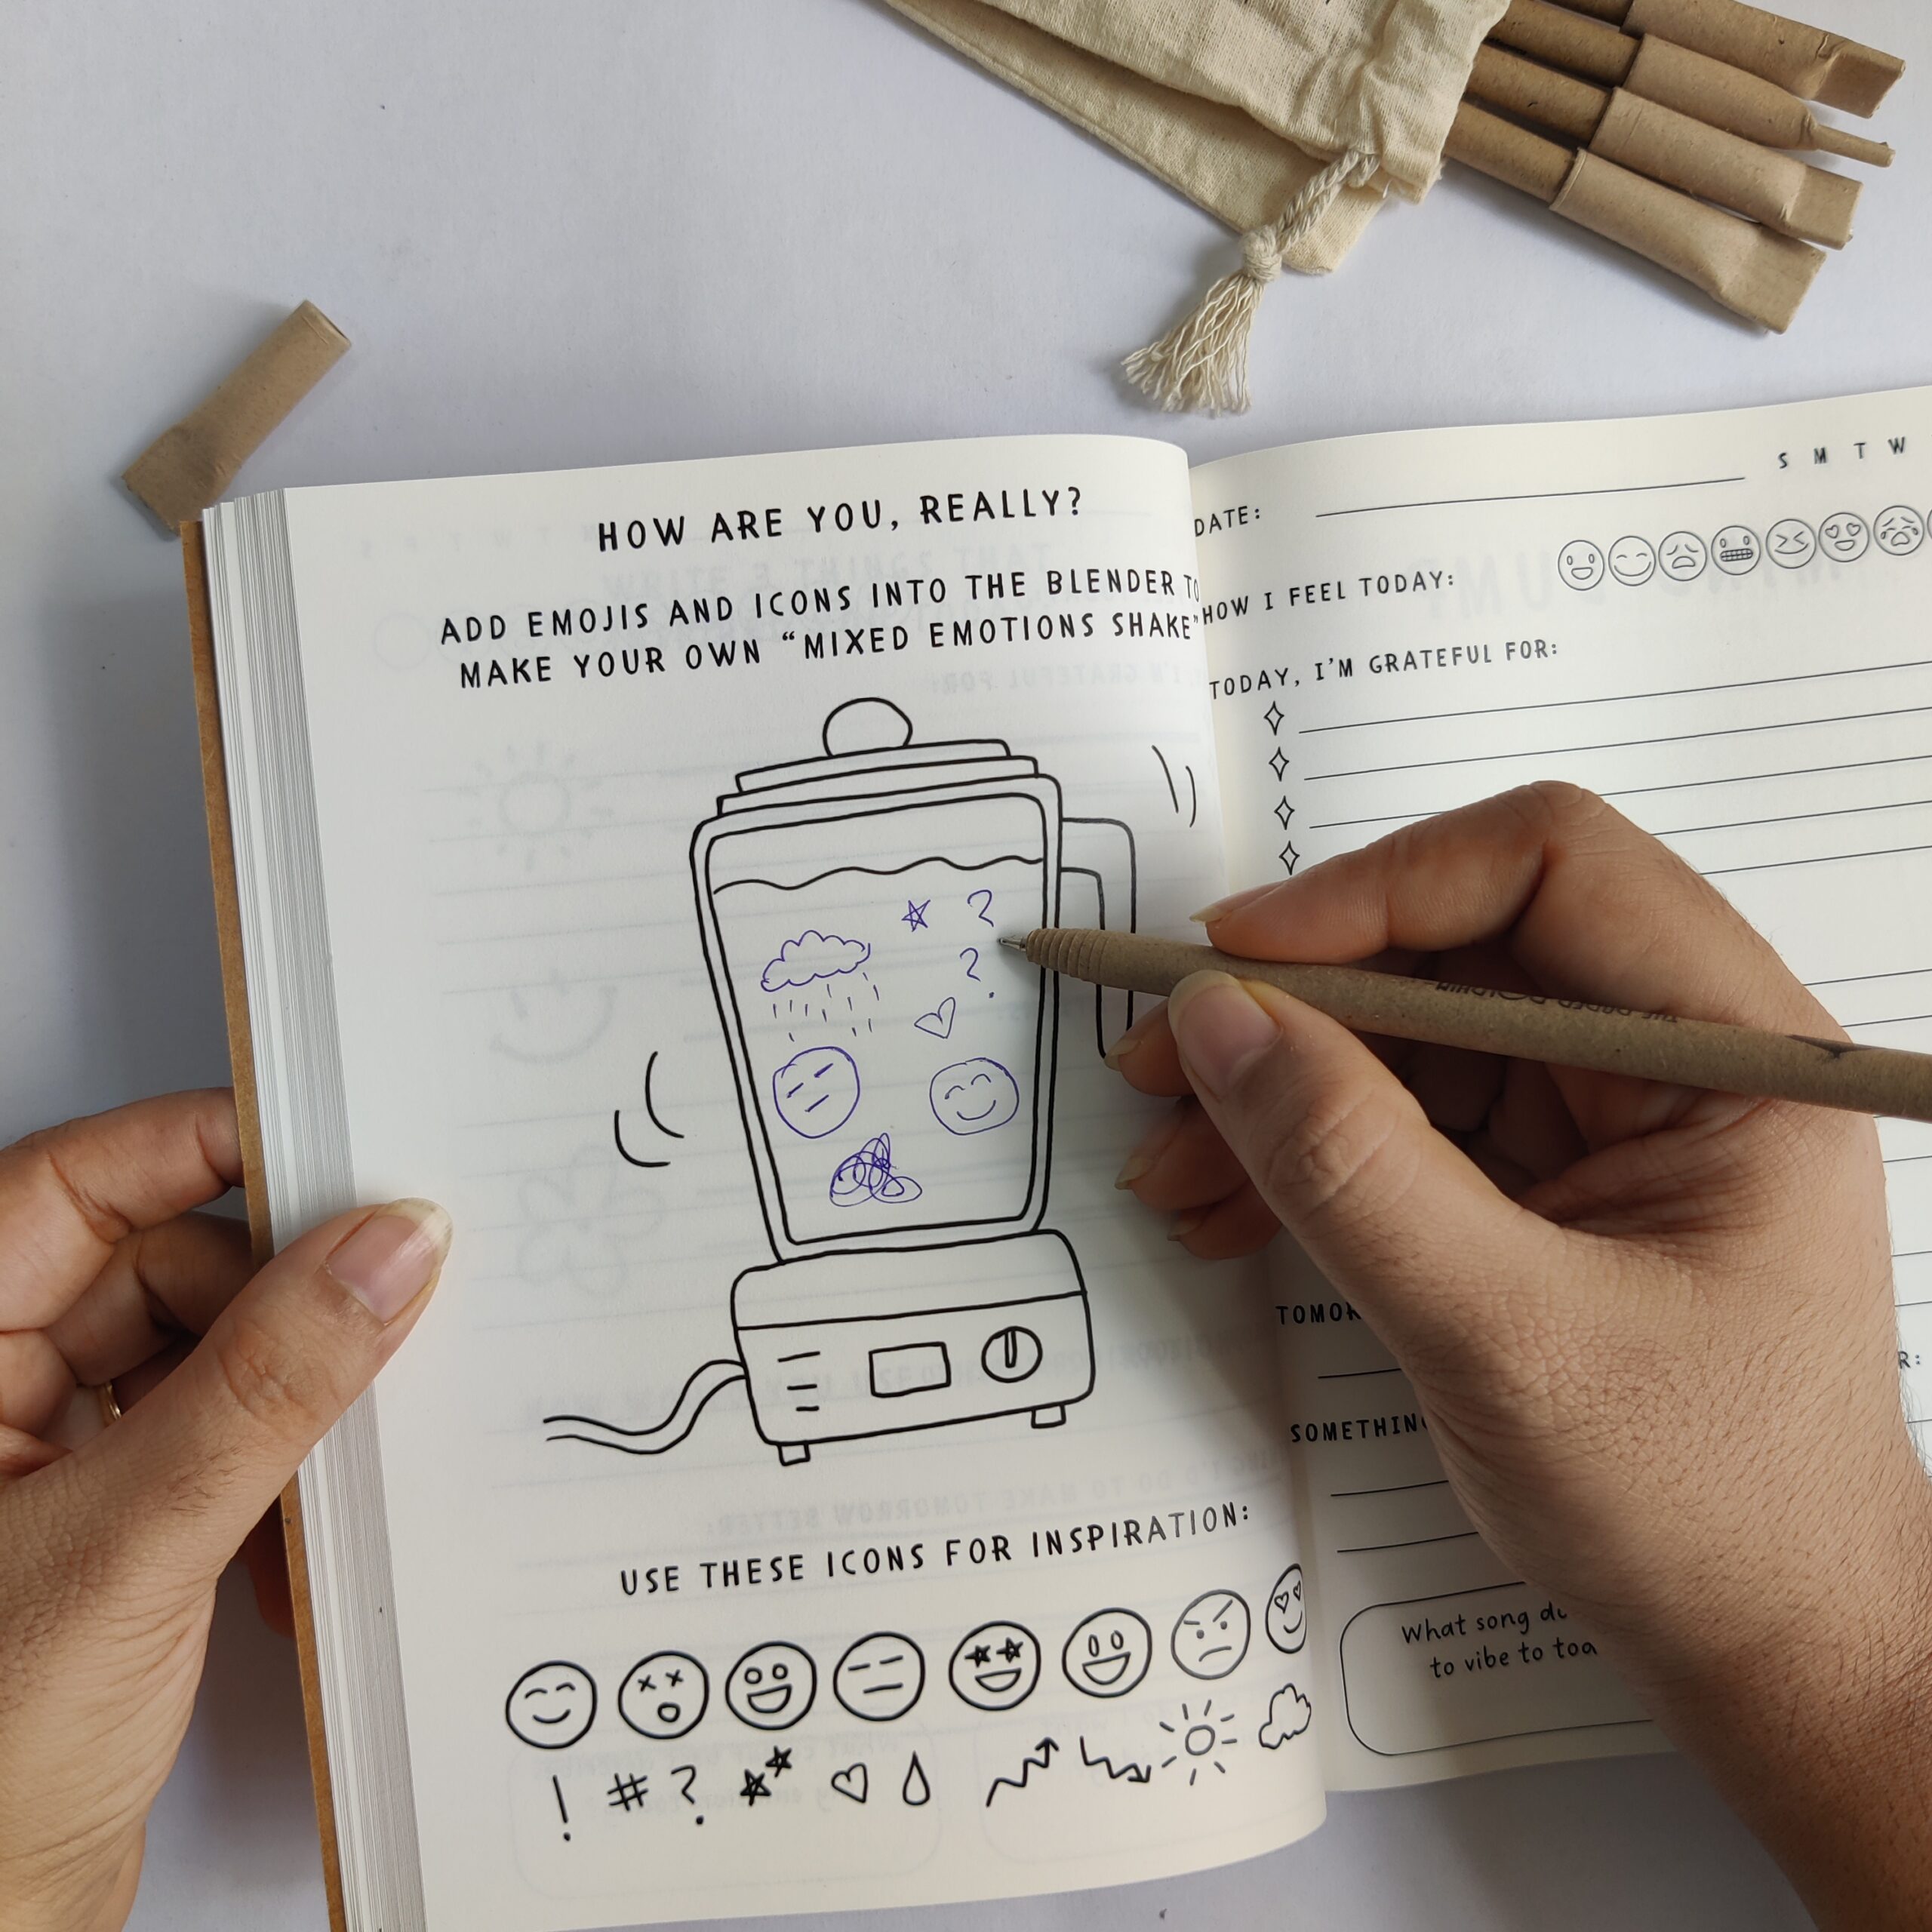 HOW ARE YOU, REALLY?
ADD EMOJIS AND ICONS INTO THE BLENDER TO
MAKE YOUR OWN “MIXED EMOTIONS SHAKE”
? 
?
USE THESE ICONS FOR INSPIRATION:
! # ?
S M T W
DATE:
HOW I FEEL TODAY:
TODAY, I’M GRATEFUL FOR:
What song
to vibe to